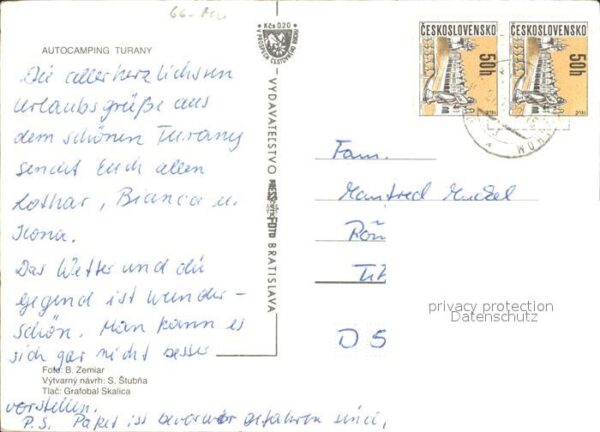 66-
Kčs 0,20
AUTOCAMPING TURANY
Die allerherzlichsten
Urlaubsgrüße aus
dem schönen Turany
sendet Euch allen
Lothar, Bianca u.
Ilona.
Das Wetter und die
Gegend ist wunder-
schön. Man kann es
sich gar nicht besser
vorstellen.
P.S. Paket ist bevor wir gefahren sind,
Foto: B. Zemiar
Výtvarný návrh: S. Štubňa
Tlač: Grafobal Skalica
VYDAVATEĽSTVO
BRATISLAVA
ČESKOSLOVENSKO
50h
ČESKOSLOVENSKO
50h
Fam.
Manfred
D 5
privacy protection
Datenschutz